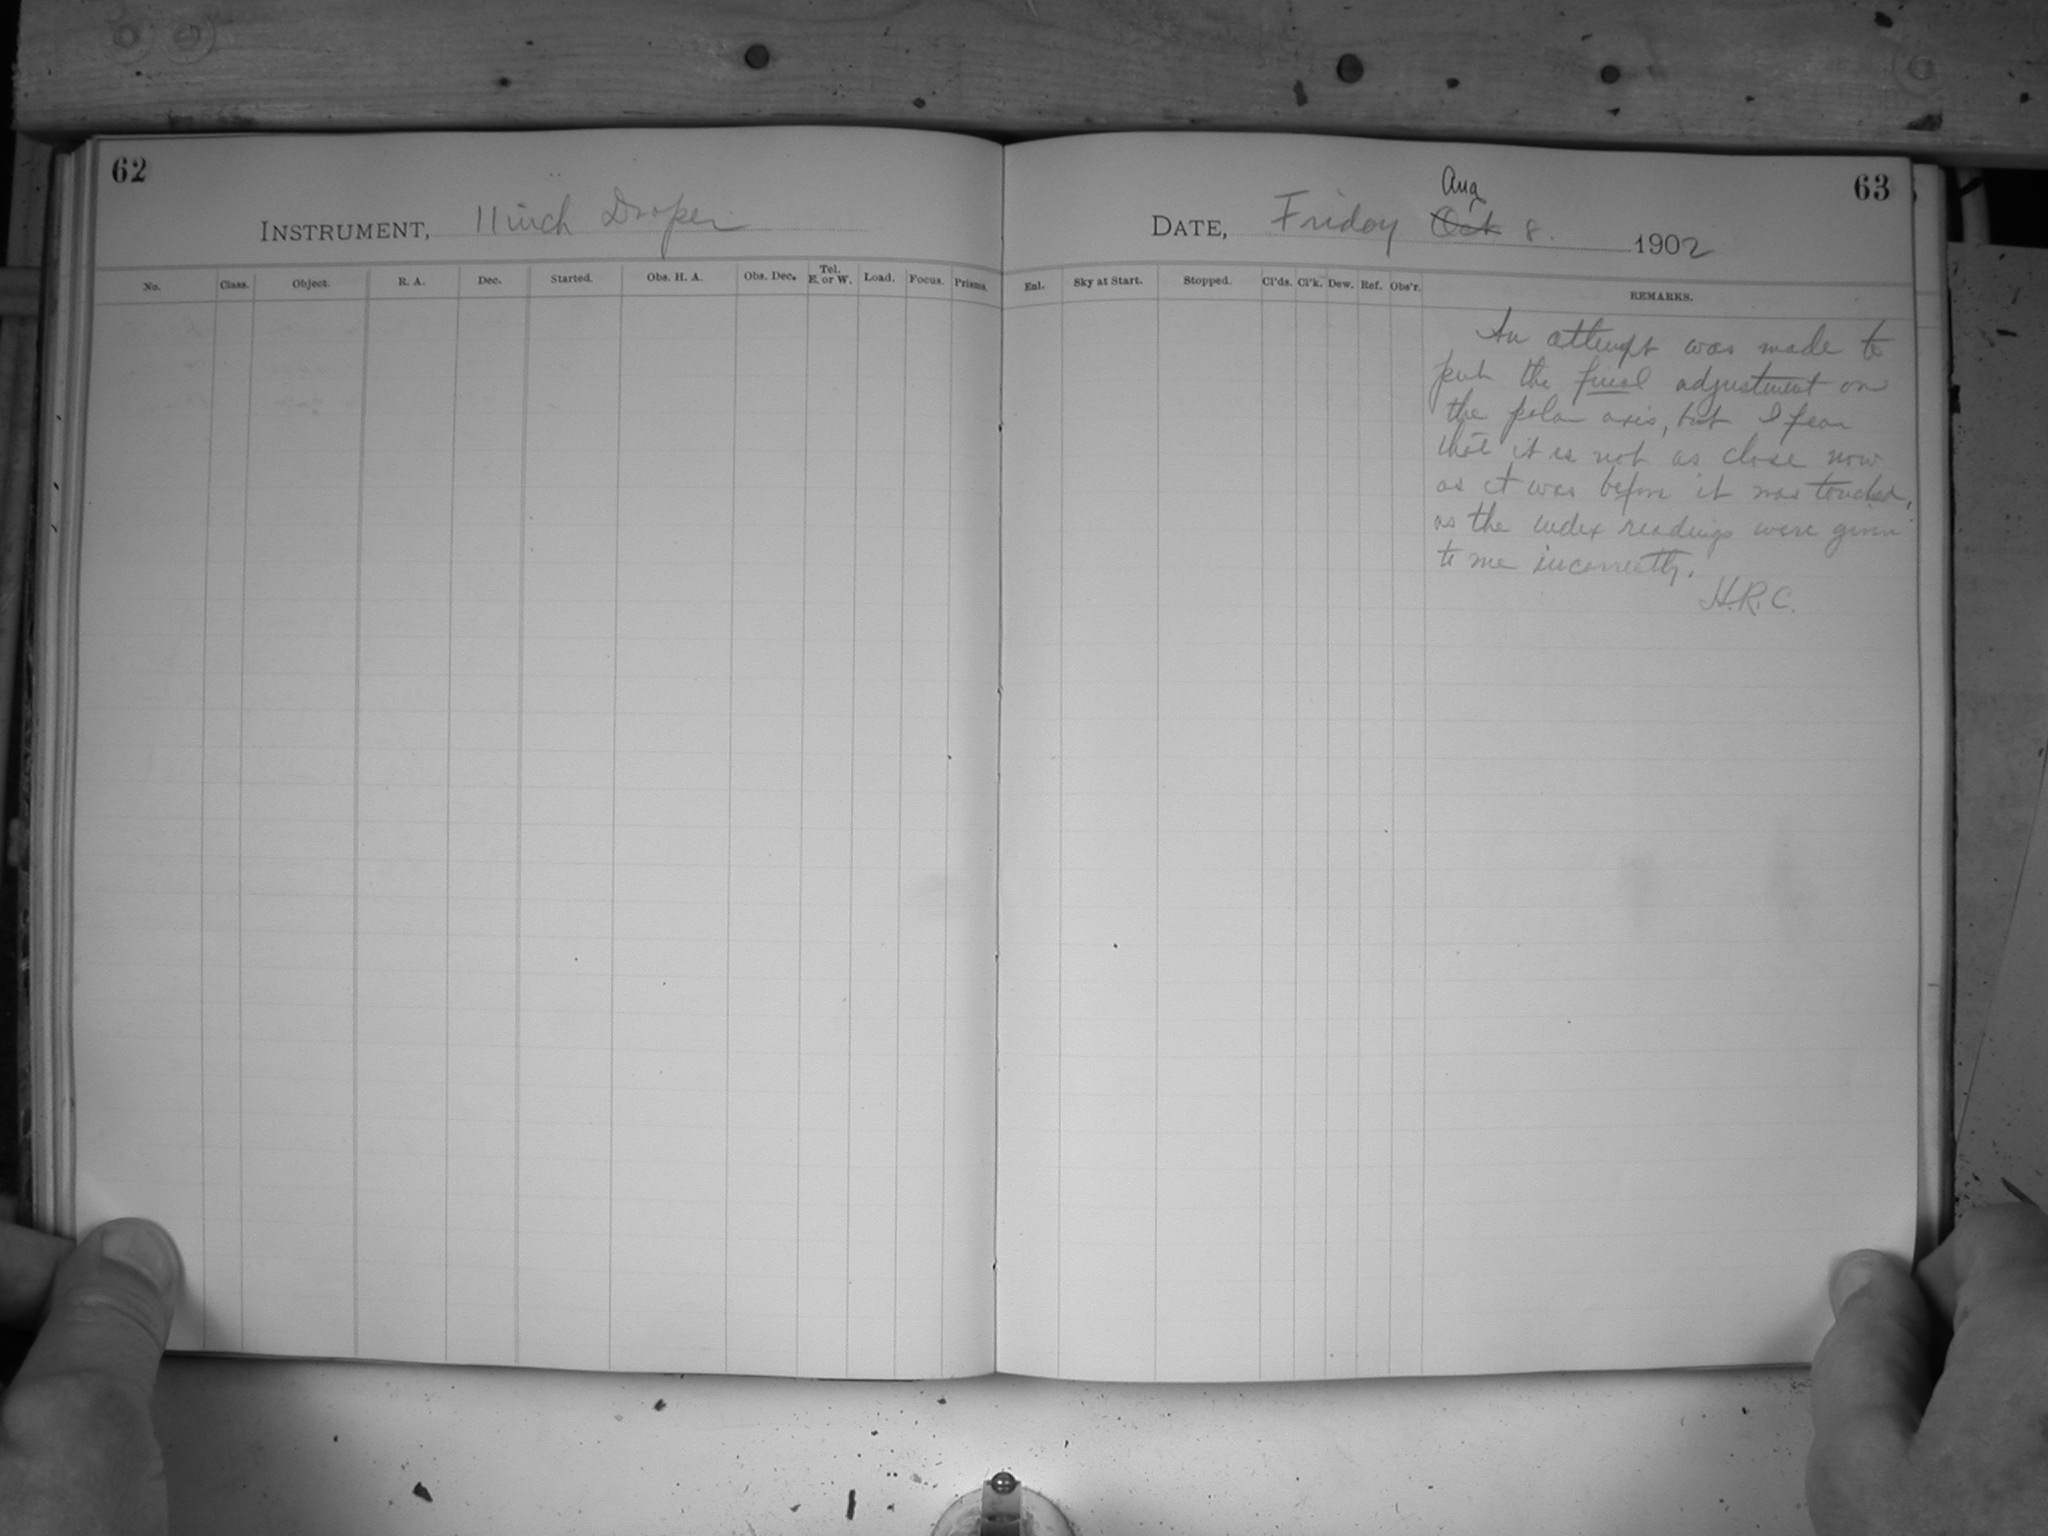 62
INSTRUMENT, 11 inch Draper
No. Class. Object. R. A. Dec. Started. Obs. H. A. Obs. Dec. Tel. E. or W. Load. Focus. Prisms.
63
Aug
DATE, Friday Oct 8. 1902
Enl. Sky at Start. Stopped. Cl'ds. Cl'k. Dew. Ref. Obs'r. REMARKS.
An attempt was made to
put the final adjustment on
the polar axis, but I fear
that it is not as close now
as it was before it was touched,
as the index readings were given
to me incorrectly.
H.R.C.